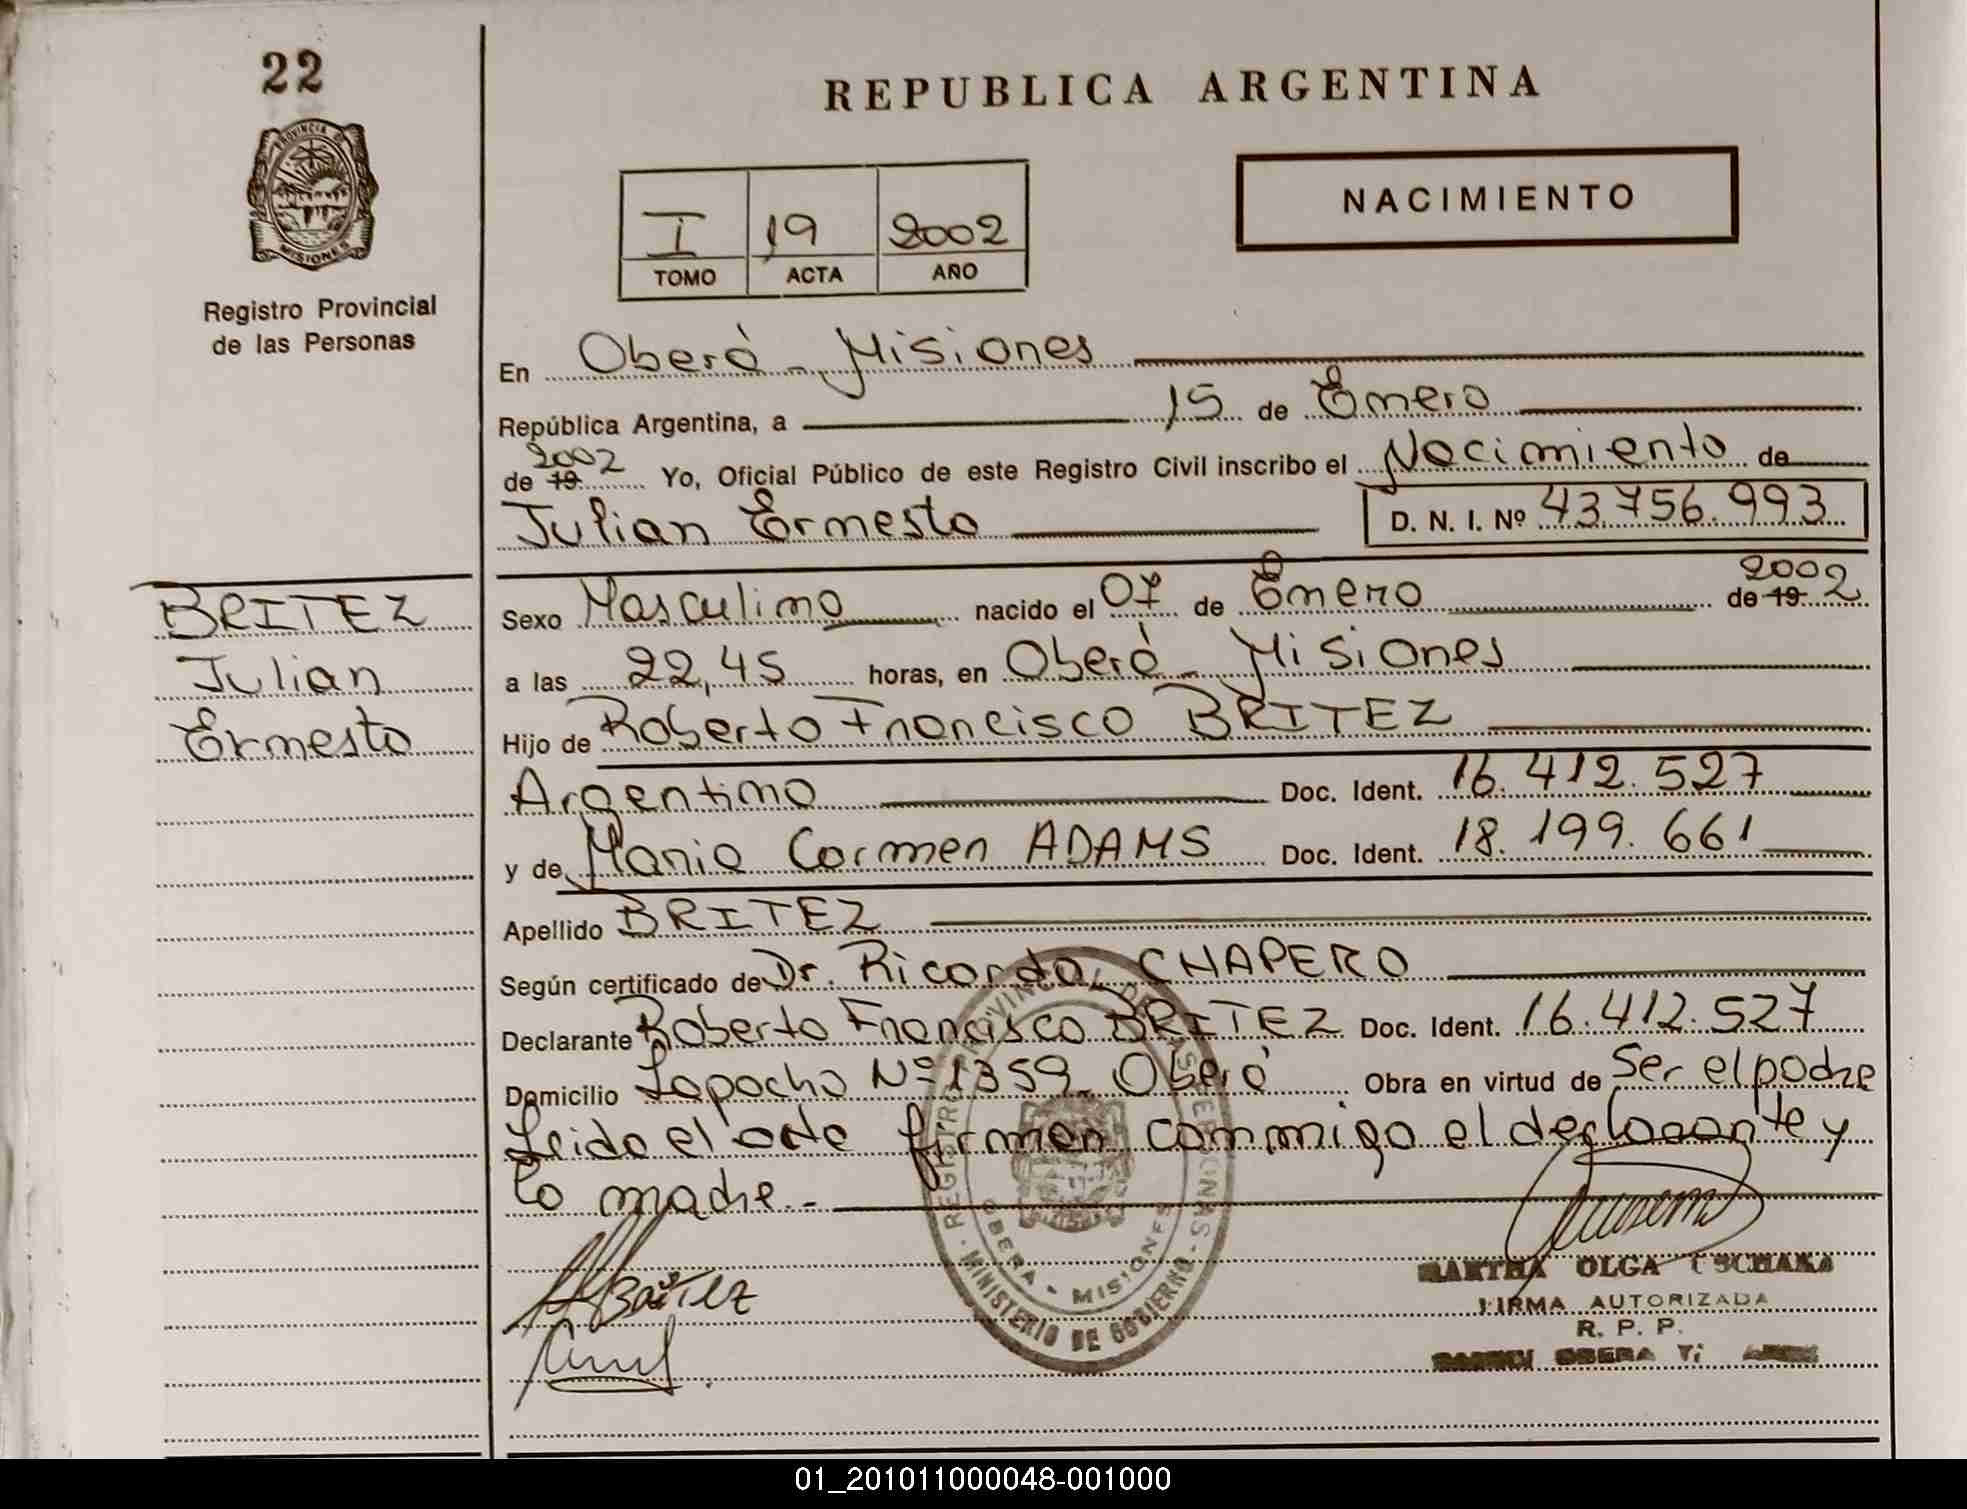 22
PROVINCIA DE
MISIONES
Registro Provincial
de las Personas
REPUBLICA ARGENTINA
NACIMIENTO
I 19 2002
TOMO ACTA AÑO
En Oberá - Misiones
República Argentina, a 15 de Enero
2002
de 19 Yo, Oficial Público de este Registro Civil inscribo el Nacimiento de
Julian Ernesto D. N. I. Nº 43.756.993
BRITEZ
Julian
Ernesto
2002
Sexo Masculino nacido el 07 de Enero de 19 2
a las 22,45 horas, en Oberá - Misiones
Hijo de Roberto Francisco BRITEZ
Argentino Doc. Ident. 16.412.527
y de Maria Carmen ADAMS Doc. Ident. 18.199.661
Apellido BRITEZ
Según certificado de Dr. Ricardo CHAPERO
Declarante Roberto Francisco BRITEZ Doc. Ident. 16.412.527
Domicilio Lapacho Nº 1359 - Oberá Obra en virtud de Ser el padre
Leida el acta firman conmigo el declarante y
la madre.-
REGISTRO PROVINCIAL DE LAS PERSONAS
OBERA - MISIONES
MINISTERIO DE GOBIERNO
Britez
MARTHA OLGA
FIRMA AUTORIZADA
R. P. P.
OBERA
01_201011000048-001000